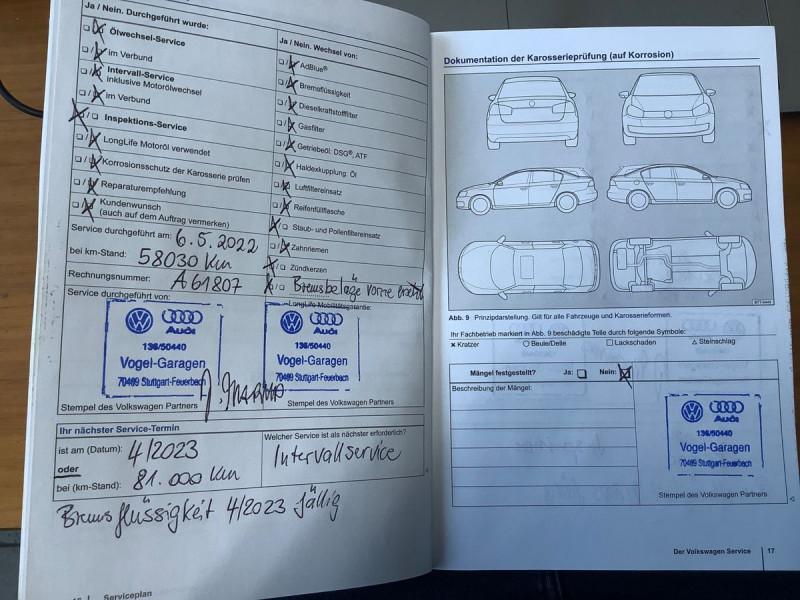 Ja / Nein. Durchgeführt wurde:
Ölwechsel-Service
im Verbund
Intervall-Service
inklusive Motorölwechsel
im Verbund
Inspektions-Service
LongLife Motoröl verwendet
Korrosionsschutz der Karosserie prüfen
Reparaturempfehlung
Kundenwunsch
(auch auf dem Auftrag vermerken)
Service durchgeführt am: 6.5.2022
bei km-Stand: 58030 Km
Rechnungsnummer: A61807
Service durchgeführt von:
Audi
136/50440
Vogel-Garagen
70469 Stuttgart-Feuerbach
Stempel des Volkswagen Partners
Ja / Nein. Wechsel von:
AdBlue®
Bremsflüssigkeit
Dieselkraftstofffilter
Gasfilter
Getriebeöl: DSG®, ATF
Haldexkupplung: Öl
Luftfiltereinsatz
Reifenfüllflasche
Staub- und Pollenfiltereinsatz
Zahnriemen
Zündkerzen
Bremsbeläge vorne ersetzt
LongLife Mobilitätsgarantie:
Audi
136/50440
Vogel-Garagen
70469 Stuttgart-Feuerbach
des Volkswagen Partners
Ihr nächster Service-Termin
ist am (Datum): 4/2023
oder
bei (km-Stand): 81.000 Km
Welcher Service ist als nächster erforderlich?
Intervallservice
Bremsflüssigkeit 4/2023 fällig
Serviceplan
Dokumentation der Karosserieprüfung (auf Korrosion)
Abb. 9 Prinzipdarstellung. Gilt für alle Fahrzeuge und Karosserieformen.
Ihr Fachbetrieb markiert in Abb. 9 beschädigte Teile durch folgende Symbole:
Kratzer Beule/Delle Lackschaden Steinschlag
Mängel festgestellt? Ja: Nein:
Beschreibung der Mängel:
Audi
136/50440
Vogel-Garagen
70469 Stuttgart-Feuerbach
Stempel des Volkswagen Partners
Der Volkswagen Service 17